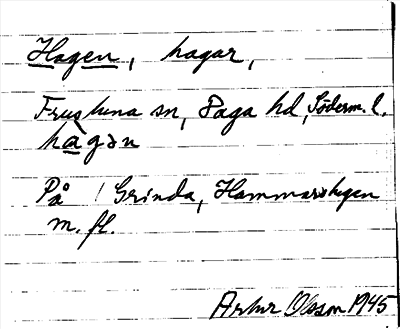 Hagen, hagar,
Frustuna sn, Daga hd, Söderm. l.
hagən
På Grinda, Hammarshagen
m. fl.
Artur Olsson 1945